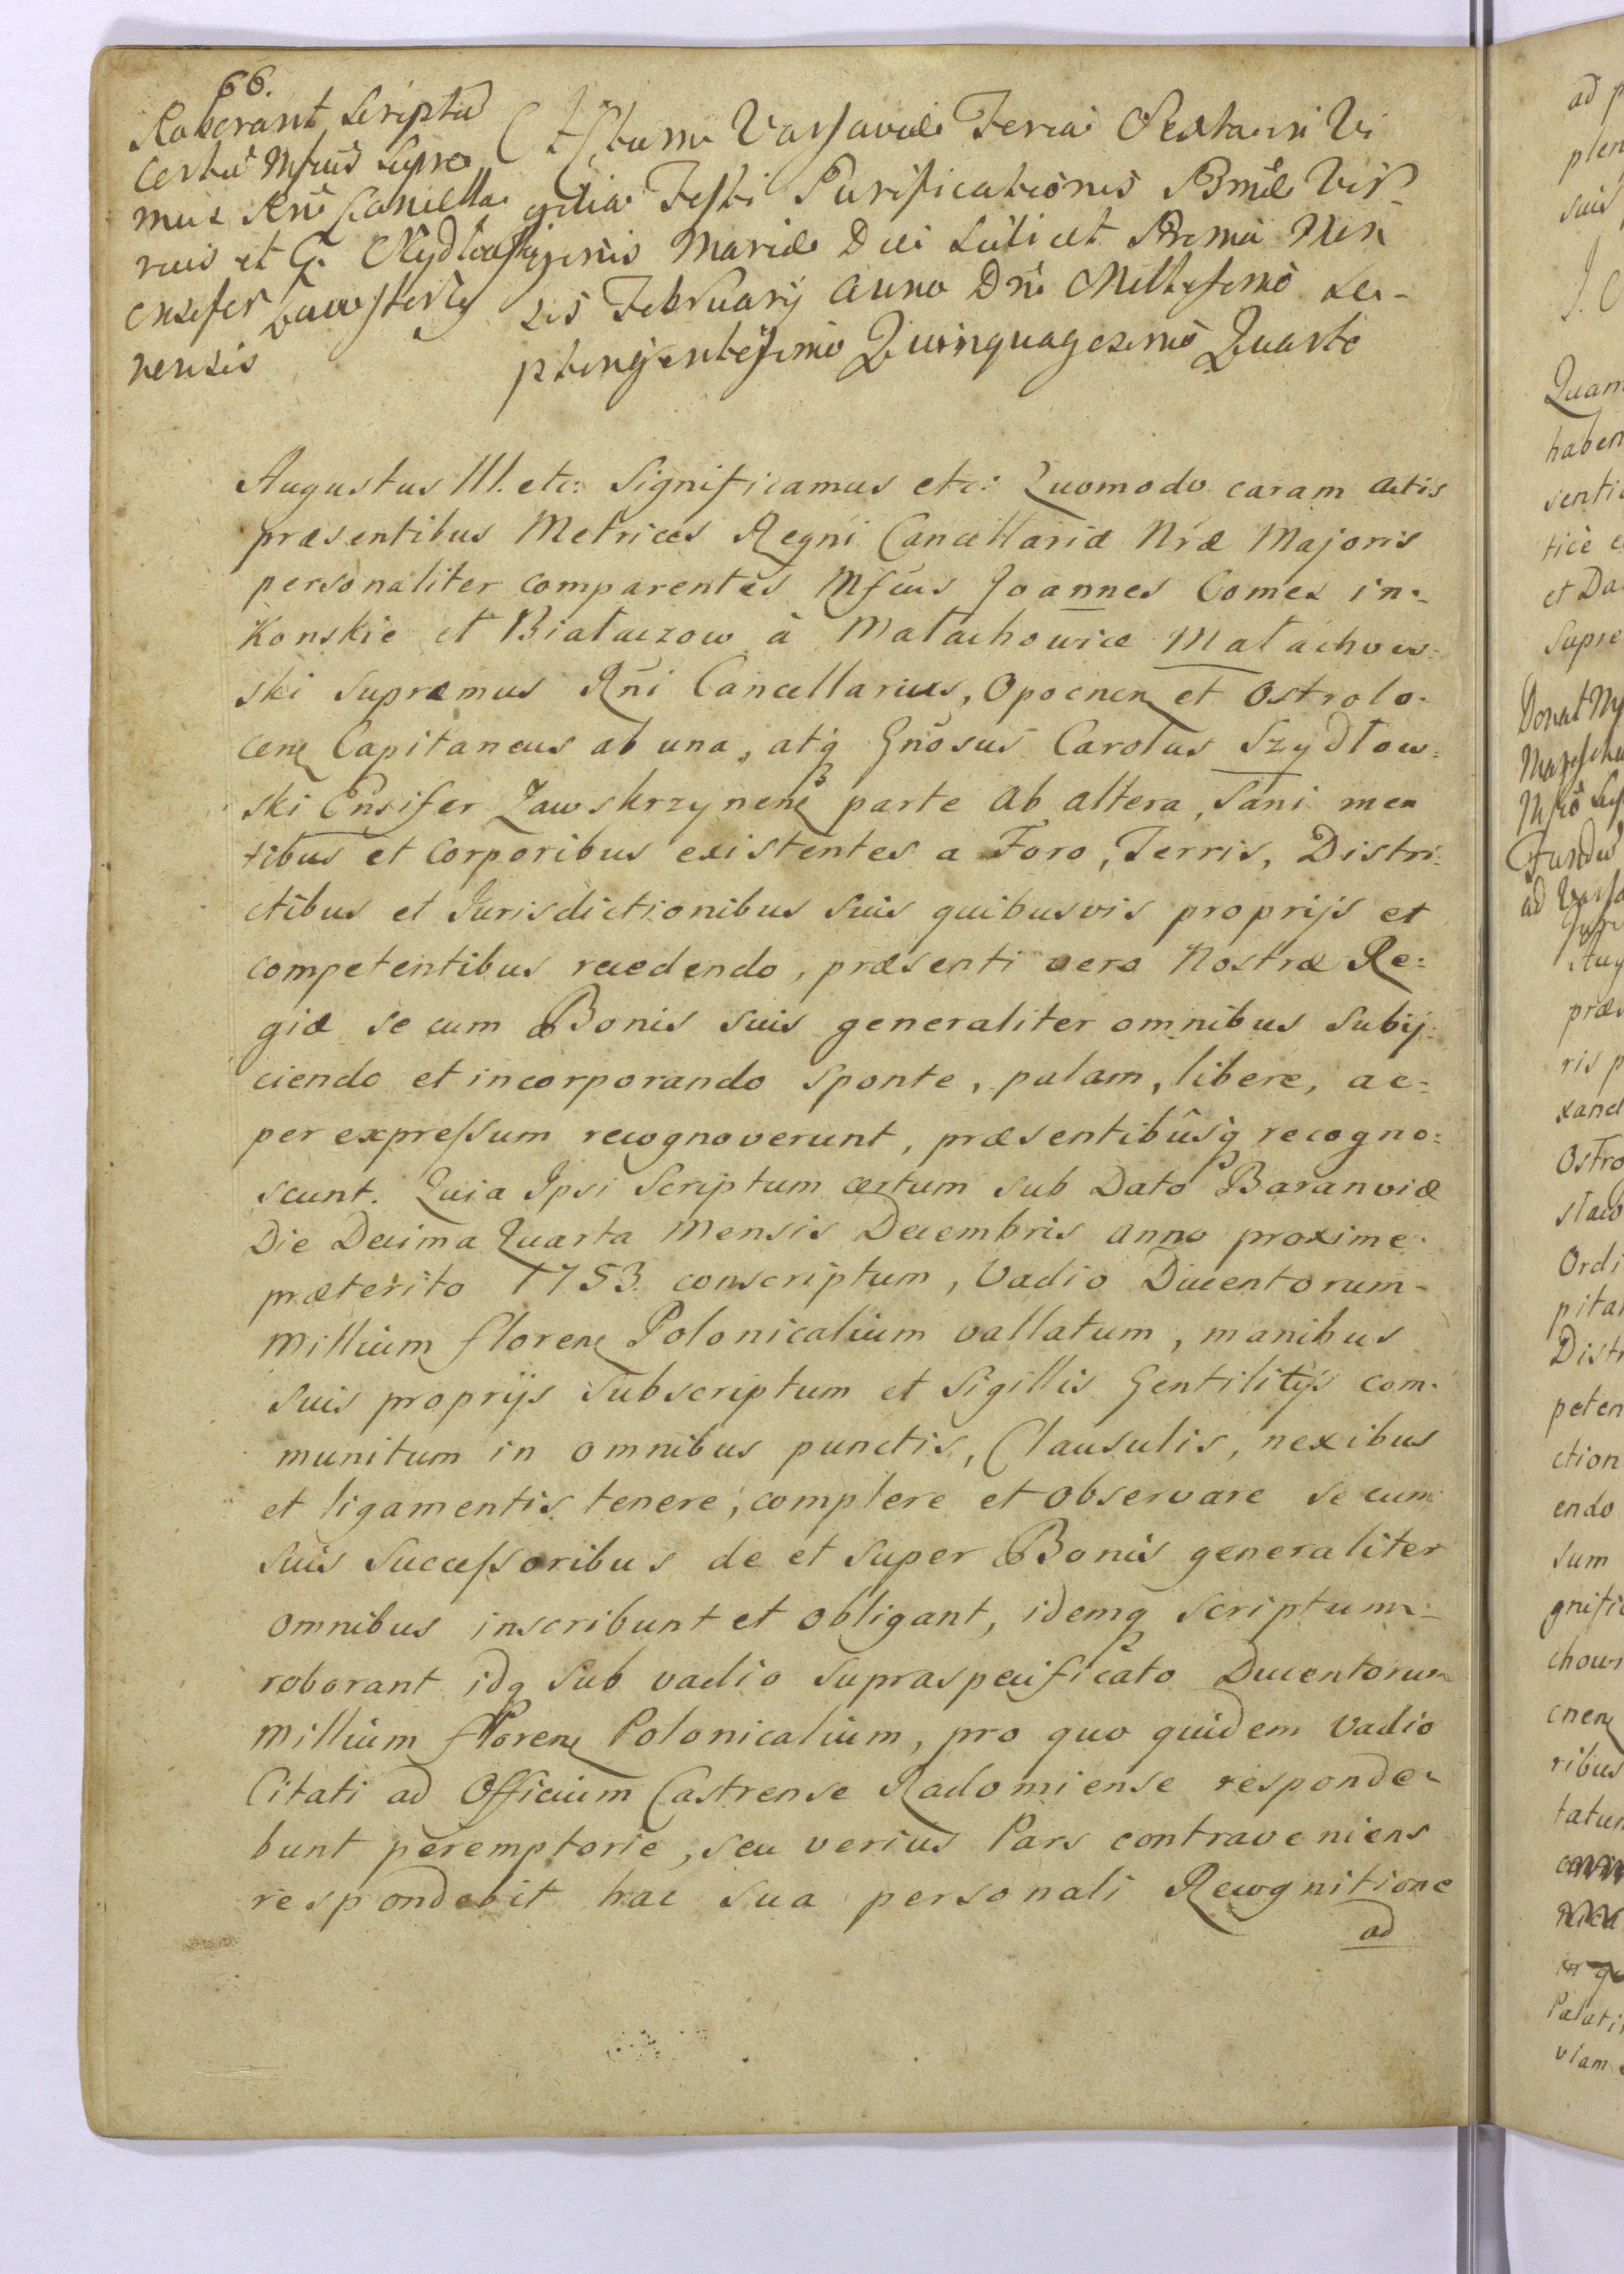 66.
Roborant Scriptu
certu Mfcus Supre
mus Rni Cancella
rius et G. Szydłowski
ensifer Zawskrzy
nensis
Actum Varsaviæ Feria Sexta in Vi
gilia Festi Purificationis Bmæ Vir-
ginis Mariæ Die scilicet Prima Men
sis Februarij Anno Dni Millesimo Se-
ptingentesimo Quinquagesimo Quarto
Augustus III. etc: Significamus etc: Quomodo coram Actis
præsentibus Metrices Regni Cancellariæ Nræ Majoris
personaliter comparentes Mfcus Joannes Comes in-
Konskie et Białaczow à Małachowice Małachow-
ski Supremus Rñi Cancellarius, Opocnen et Ostrolo-
cen Capitaneus ab una, atq Gnosus Carolus Szydłow-
ski Ensifer Zawskrzynen parte ab altera, Sani men
tibus et Corporibus existentes a Foro, Terris, Distri-
ctibus et Jurisdictionibus suis quibusvis proprijs et
competentibus recedendo, præsenti vero Nostræ Re:
giæ se cum Bonis suis generaliter omnibus Subij-
ciendo et incorporando sponte, palam, libere, ac-
per expressum recognoverunt, præsentibusq recogno:
scunt. Quia Ipsi Scriptum certum sub Dato Baranviæ
Die Decima Quarta Mensis Decembris Anno proxime
præterito 1753. conscriptum, Vadio Ducentorum-
Millium floren Polonicalium vallatum, manibus
suis proprijs Subscriptum et Sigillis Gentilitijs com-
munitum in omnibus punctis, Clausulis, nexibus
et ligamentis tenere, complere et observare se cum
suis successoribus de et super Bonis generaliter
omnibus inscribunt et obligant, idemq scriptum-
roborant idq sub vadio supraspecificato Ducentorum
Millium floren Polonicalium, pro quo quidem Vadio
Citati ad Officium Castrense Radomiense responde-
bunt peremptorie, seu verius Pars contraveniens
respondebit hac sua personali Recognitione
ad
ad p
plen
suis
Quam
haben
senti
tice
et Da
Supre
Donat
ad Varsa
Aug
præs
ris p
xand
Ostro
staw
Ordi
pitan
Distr
peten
ction
endo
sum
gnifi
chow
cnen
ribus
tatum
Palati
viam